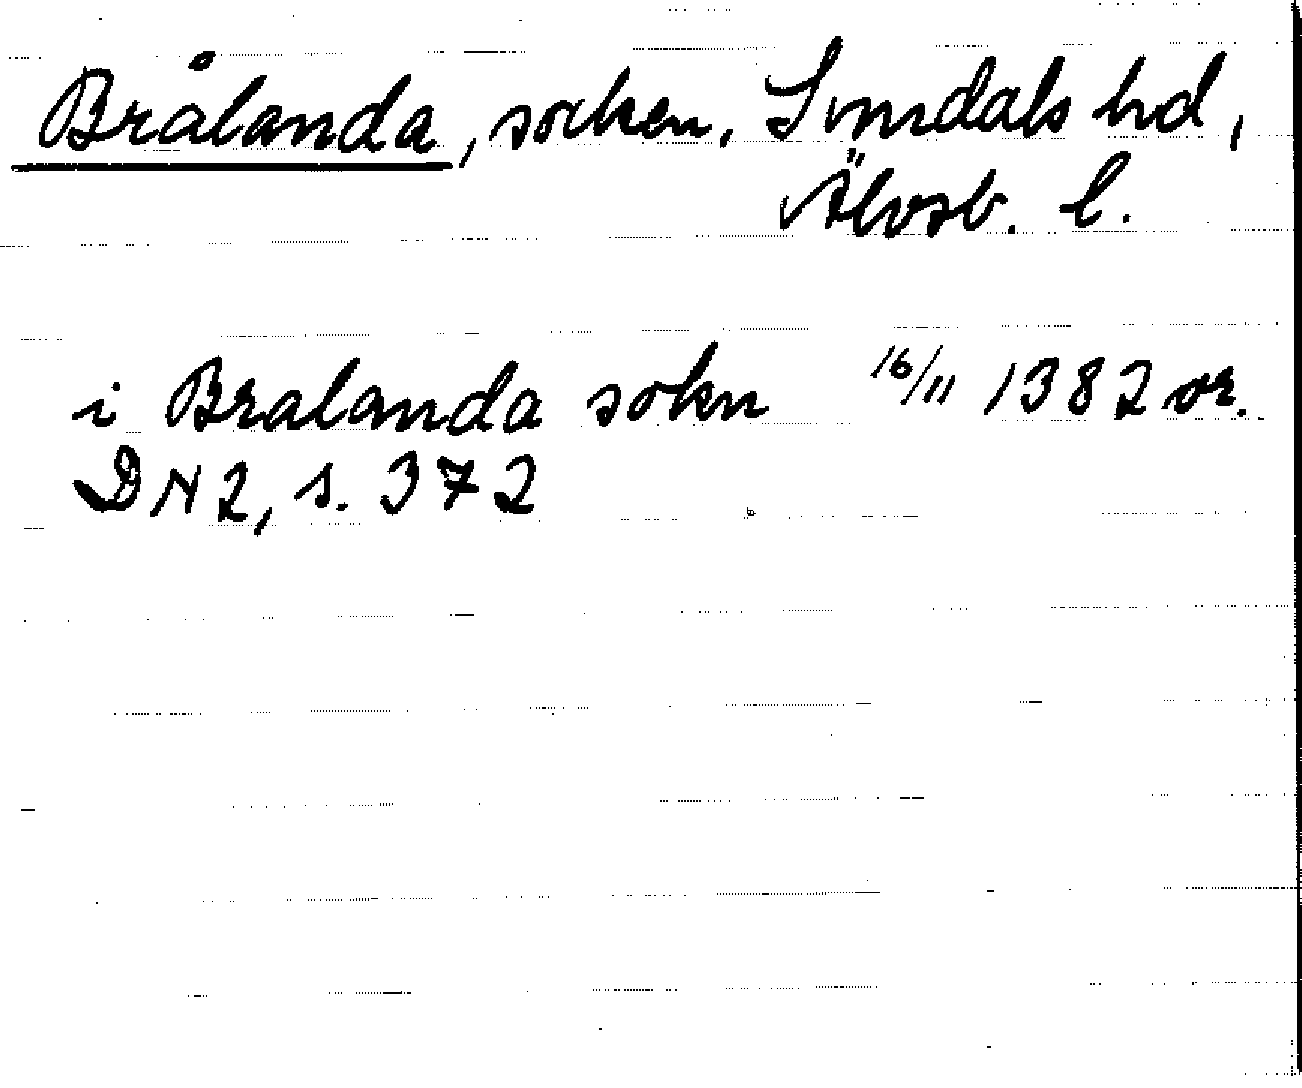 Brålanda, socken, Sundals hd,
Älvsb. l.
i Bralanda sokn 16/11 1382 or.
DN 2, s. 372